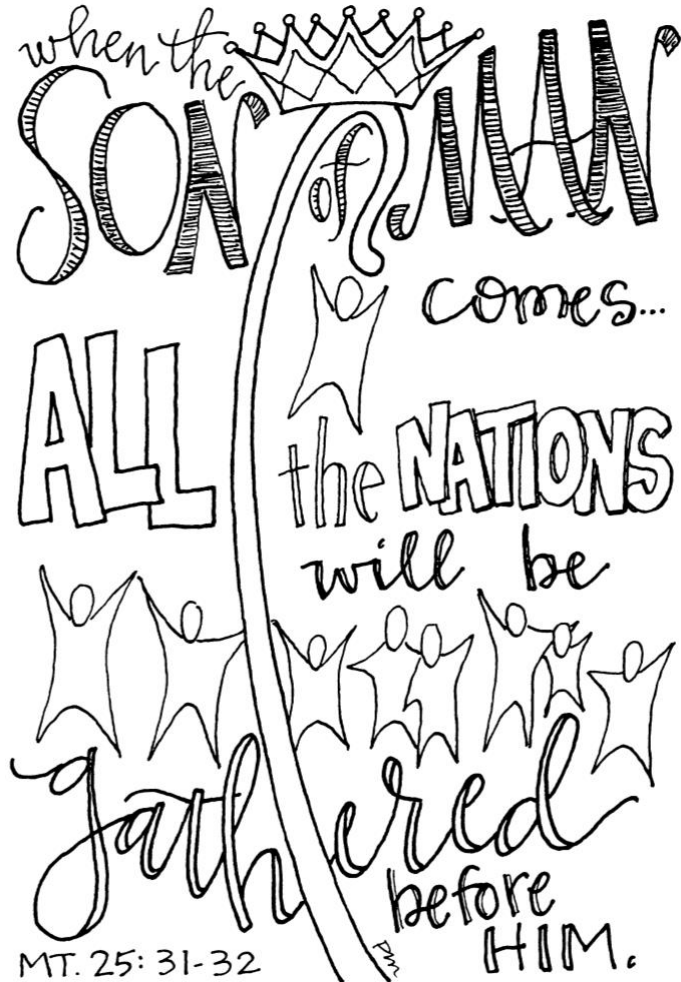 when the
SON of MAN
comes...
ALL
the NATIONS
will be
gathered
before
HIM.
MT. 25: 31-32
PM